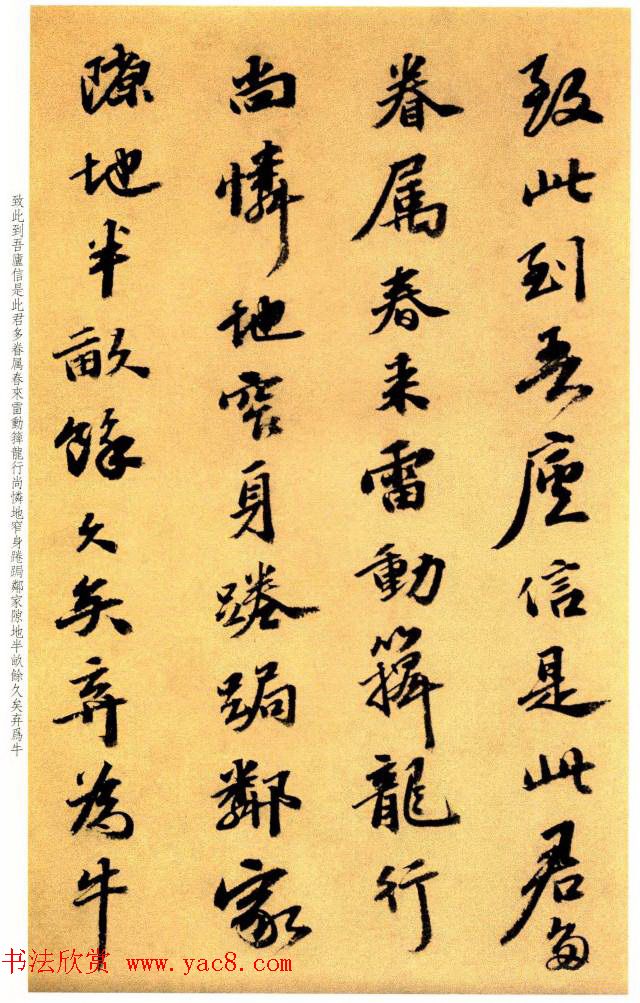 致此到吾廬信是此君多
眷属春来雷動籜龍行
尚憐地窄身踡跼鄰家
隙地半畝餘久矣弃為牛
致此到吾廬信是此君多眷属春來雷動籜龍行尚憐地窄身踡跼鄰家隙地半畝餘久矣弃爲牛
书法欣赏 www.yac8.com